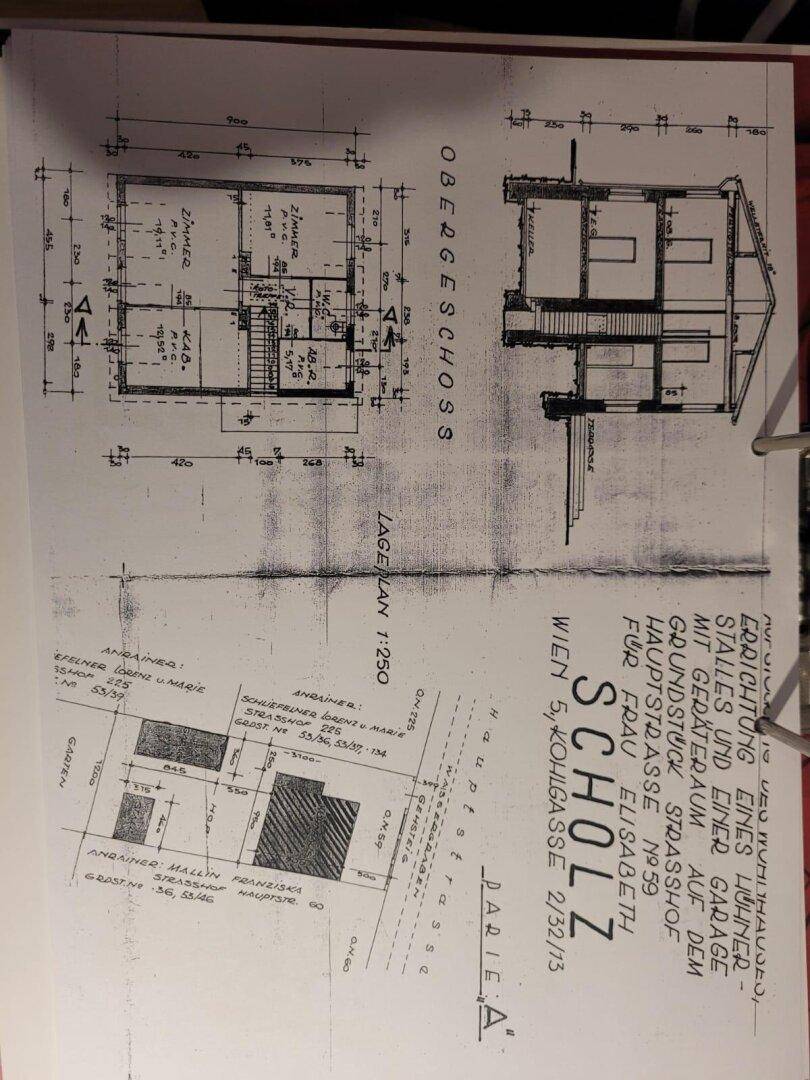 AUFSTOCKUNG DES WOHNHAUSES,
ERRICHTUNG EINES HÜHNER-
STALLES UND EINER GARAGE
MIT GERÄTERAUM AUF DEM
GRUNDSTÜCK STRASSHOF
HAUPTSTRASSE Nº 59
FÜR FRAU ELISABETH
SCHOLZ
WIEN 5, KOHLGASSE 2/32/13
PARIE: "A"
180
260
290
250
60
KELLER
E.G.
TERRASSE
85
OBERGESCHOSS
900
420
45
375
ZIMMER
P.V.C.
19,11
ZIMMER
P.V.C.
11,81
KAB.
P.V.C.
12,52
W.C.
P.V.C.
V.R.
AB.R.
P.V.C.
5,17
85
194
85
194
180
230
230
180
455
298
210
270
210
180
315
238
195
420
45
100
268
LAGEPLAN 1:250
Hauptstrasse
WASSERGRABEN
GEHSTEIG
O.N. 225
O.N. 59
O.N. 60
ANRAINER:
SCHLIEFELNER LORENZ u. MARIE
STRASSHOF 225
GRDST. Nº 53/36, 53/37, ·134
ANRAINER:
EFELNER LORENZ u. MARIE
SSHOF 225
. Nº 53/39
GARTEN
HOF
1200
845
550
375
360
250
950
3100
399
500
ANRAINER: MALLIN FRANZISKA
STRASSHOF HAUPTSTR. 60
GRDST. Nº ·36, 53/46